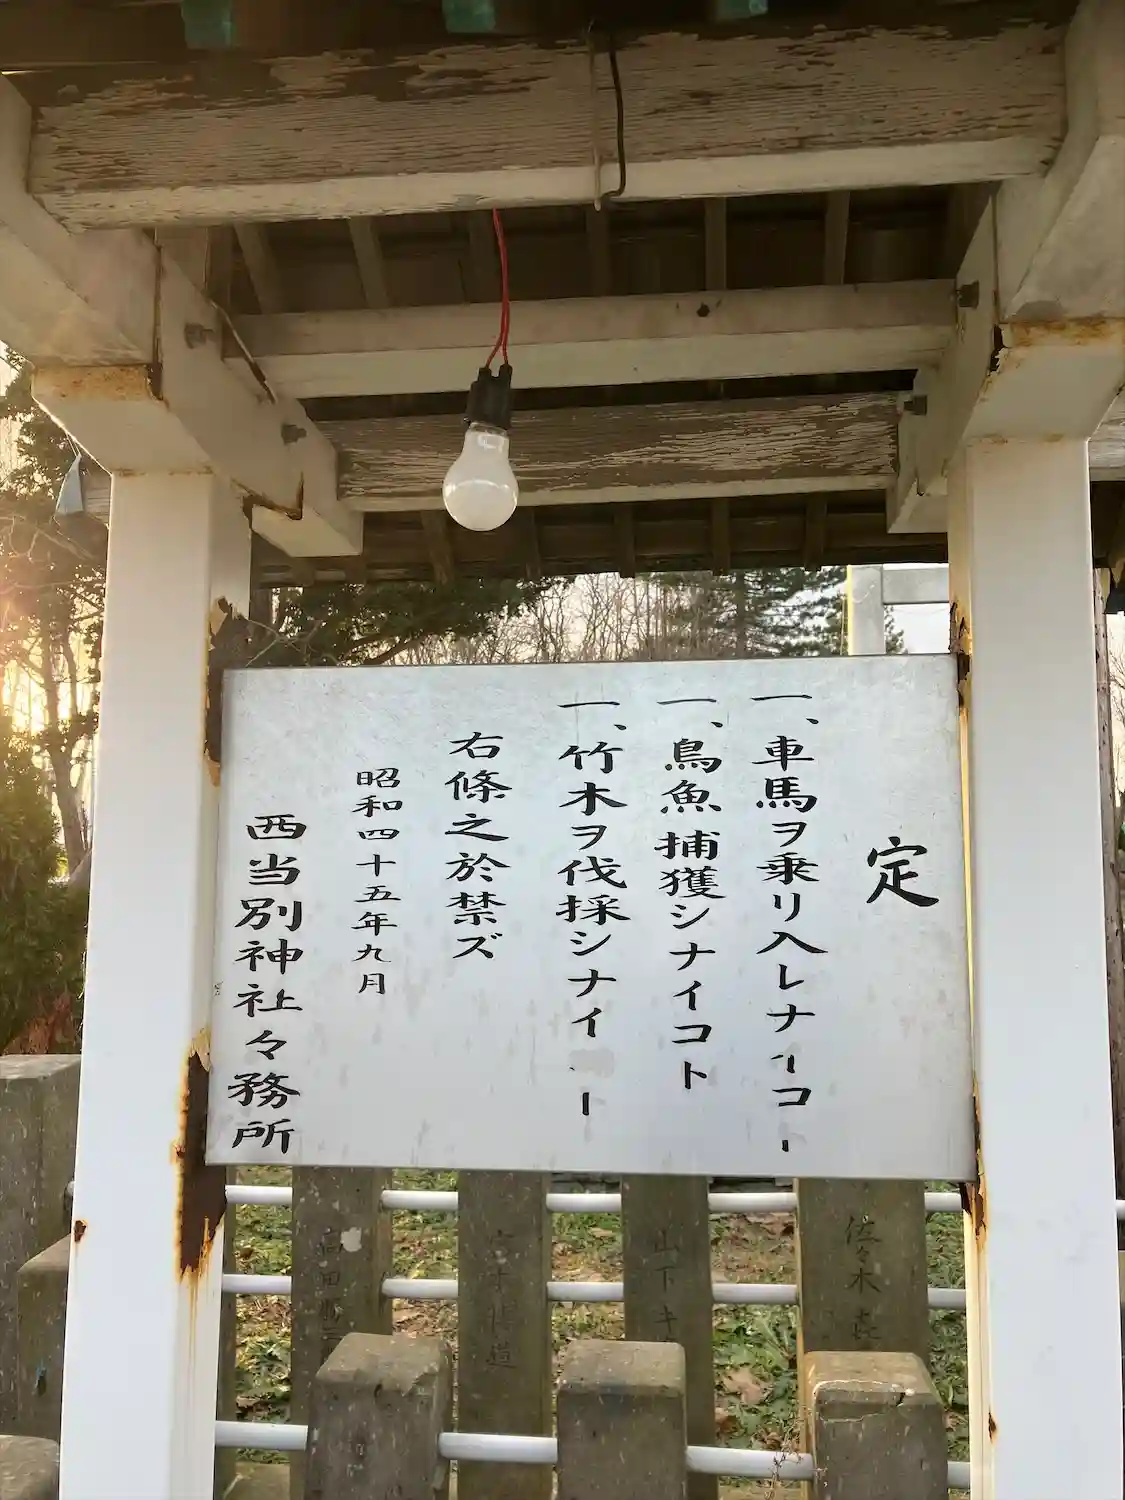 定
一、車馬ヲ乗リ入レナイコト
一、鳥魚捕獲シナイコト
一、竹木ヲ伐採シナイ
右條之於禁ズ
昭和四十五年九月
西当別神社々務所
佐々木
山下キ
高田